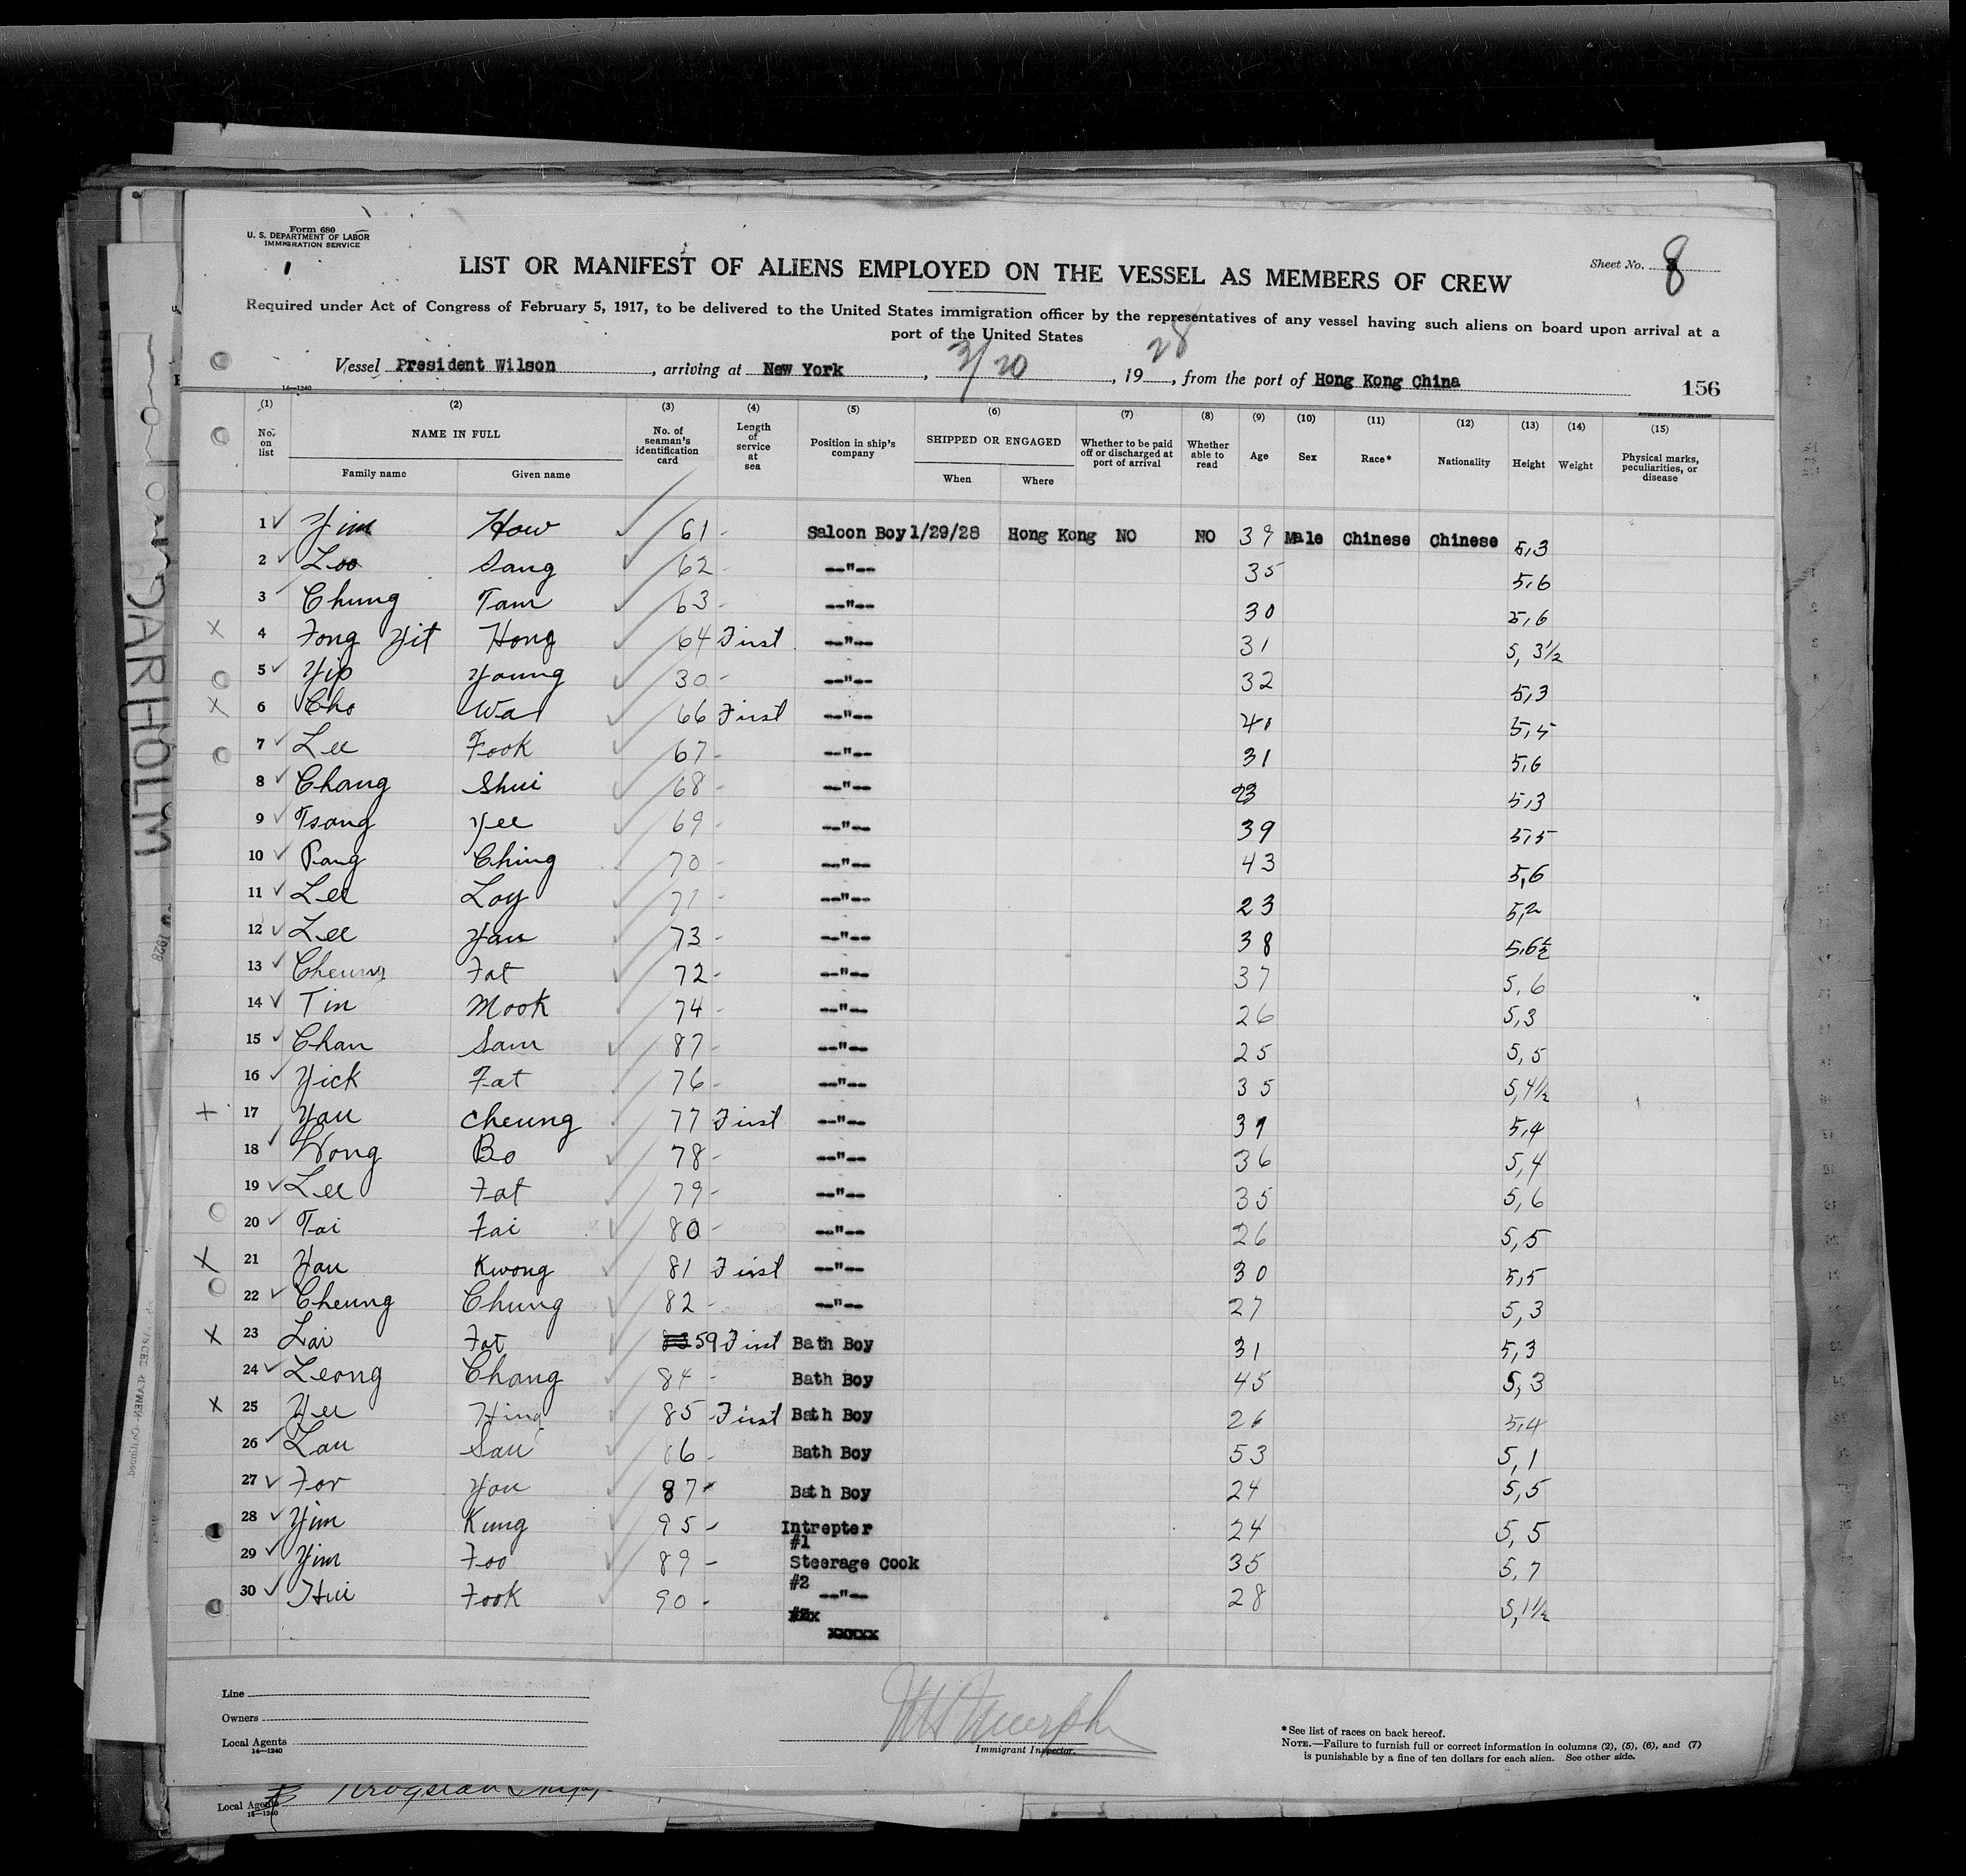 Form 680
U. S. DEPARTMENT OF LABOR
IMMIGRATION SERVICE
LIST OR MANIFEST OF ALIENS EMPLOYED ON THE VESSEL AS MEMBERS OF CREW
Sheet No. 8
Required under Act of Congress of February 5, 1917, to be delivered to the United States immigration officer by the representatives of any vessel having such aliens on board upon arrival at a
port of the United States
Vessel President Wilson, arriving at New York, 3/20, 1928, from the port of Hong Kong China
14—1240
156
(1) (2) (3) (4) (5) (6) (7) (8) (9) (10) (11) (12) (13) (14) (15)
No. on list NAME IN FULL No. of seaman's identification card Length of service at sea Position in ship's company SHIPPED OR ENGAGED Whether to be paid off or discharged at port of arrival Whether able to read Age Sex Race* Nationality Height Weight Physical marks, peculiarities, or disease
Family name Given name When Where
1 ✓ Yim How ✓ 61 - Saloon Boy 1/29/28 Hong Kong NO NO 39 Male Chinese Chinese 5,3
2 ✓ Loo Sang ✓ 62 - --"-- 35 5,6
3 Chung Tam ✓ 63 - --"-- 30 5,6
X 4 Fong Yit Hong ✓ 64 First --"-- 31 5, 3½
5 ✓ Yip Young ✓ 30 - --"-- 32 5,3
X 6 Cho Wa ✓ 66 First --"-- 40 5,5
7 ✓ Lee Fook ✓ 67 - --"-- 31 5,6
8 ✓ Chang Shui ✓ 68 - --"-- 23 5,3
9 ✓ Tsang Yee ✓ 69 - --"-- 39 5,5
10 ✓ Pang Ching ✓ 70 - --"-- 43 5,6
11 ✓ Lee Loy ✓ 71 - --"-- 23 5,2
12 ✓ Lee Yau ✓ 73 - --"-- 38 5,6½
13 ✓ Cheung Fat ✓ 72 - --"-- 37 5,6
14 ✓ Tin Mook ✓ 74 - --"-- 26 5,3
15 ✓ Chan Sam ✓ 87 - --"-- 25 5,5
16 ✓ Yick Fat ✓ 76 - --"-- 35 5,4½
+ 17 Yau Cheung ✓ 77 First --"-- 39 5,4
18 ✓ Wong Bo ✓ 78 - --"-- 36 5,4
19 ✓ Lee Fat ✓ 79 - --"-- 35 5,6
20 ✓ Tai Fai ✓ 80 - --"-- 26 5,5
X 21 Yau Kwong ✓ 81 First --"-- 30 5,5
22 ✓ Cheung Chung ✓ 82 - --"-- 27 5,3
X 23 Lai Fat ✓ 59 First Bath Boy 31 5,3
24 ✓ Leong Chang ✓ 84 - Bath Boy 45 5,3
X 25 Yee Hing ✓ 85 First Bath Boy 26 5,4
26 ✓ Lau Sau ✓ 6 - Bath Boy 53 5,1
27 ✓ For You ✓ 87 - Bath Boy 24 5,5
28 ✓ Yim Kung ✓ 95 - Intrepter 24 5,5
#1
29 ✓ Yim Foo ✓ 89 - Steerage Cook 35 5,7
#2
30 ✓ Hui Fook ✓ 90 - --"-- 28 5,1½
xxxxx
Line
Owners
Local Agents
14—1240
Murphy
Immigrant Inspector.
*See list of races on back hereof.
NOTE.—Failure to furnish full or correct information in columns (2), (5), (6), and (7)
is punishable by a fine of ten dollars for each alien. See other side.
Local Agents
14—1240